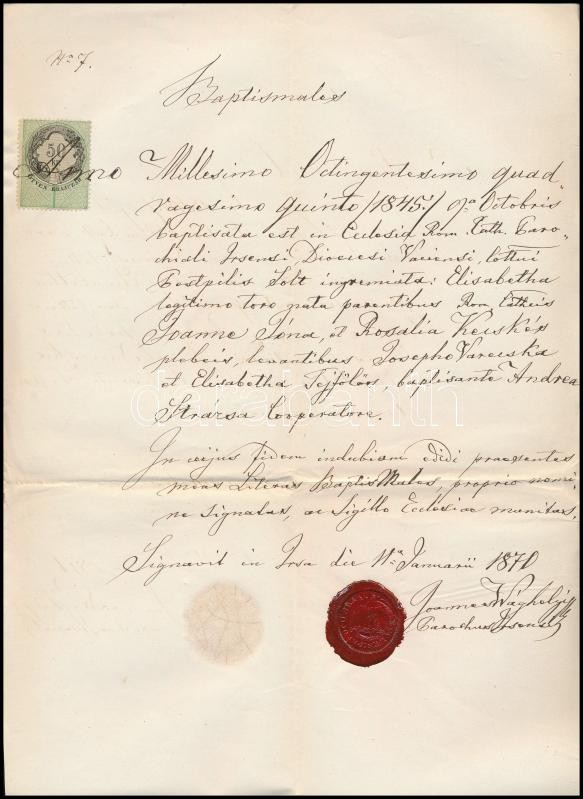 No 7.
Baptismales
50
ÖTVEN KRAJCZÁR
Anno Millesimo Octingentesimo quad-
ragesimo quinto /1845:/ Octobris
baptisata est in Ecclesia Rom. Cath. Paro-
chiali Irsensi Diocesi Vaciensi, lottui
Pestpilis Solt ingremiata: Elisabetha
legitimo toro nata parentibus Rom Catheis
Joanne Jóna, et Rosalia Kecskés
plebeis, levantibus Josepho Varecska
et Elisabetha Tejfölös, baptisante Andrea
Strázsa Cooperatore.
In cujus fidem indubiam edidi praesentes
meas Literas BaptisMales, proprio nomi-
ne signatas, ac Sigillo Ecclesiae munitas.
Signavit in Irsa die 11a Januarii 1870
Joannes Vághelyi
Parochus Irsensis
darabanth